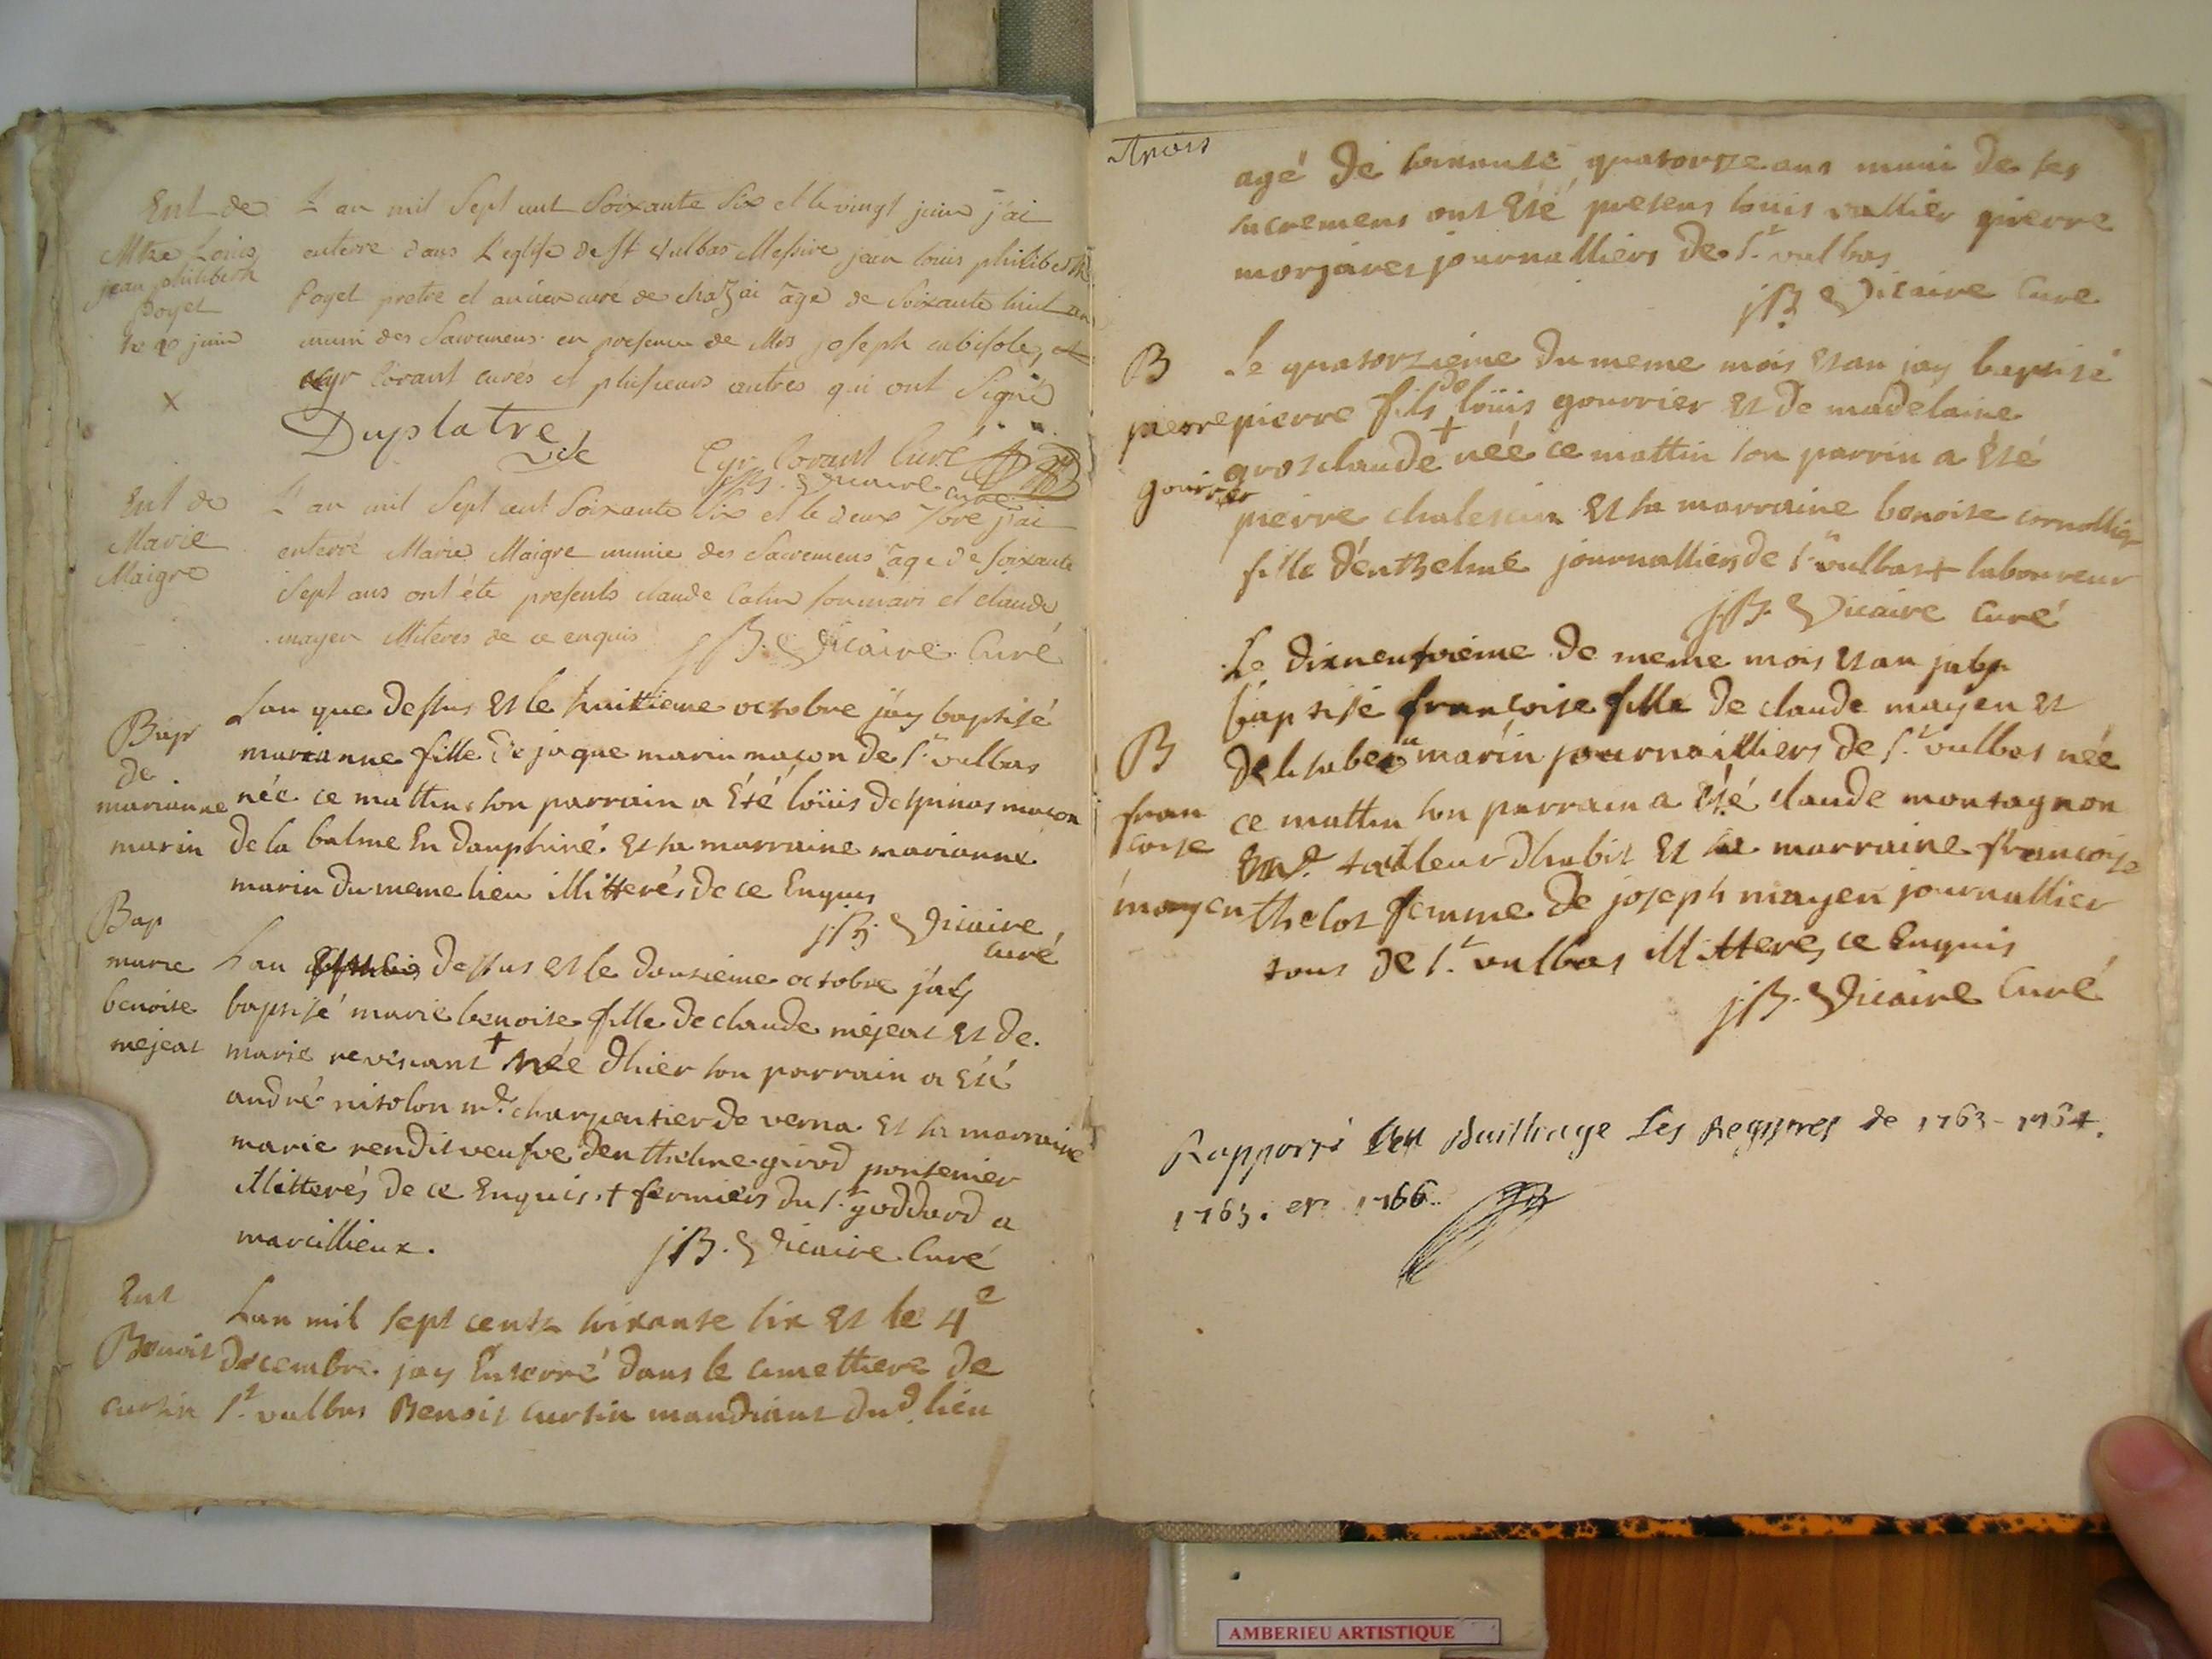 Ent de
Mtre Louis
jean philiberth
Poyet
le 20 juin
X
L an mil Sept cent Soixante Six et le vingt juin j'ai
enterre dans L'eglise de St Vulbas Messire jean louis philiberth
Poyet pretre et ancien curé de chazai agé de Soixante huit an
muni des Sacremens en presence de Mes joseph cubisole, et
Cyr Corant curés et plusieurs autres qui ont Signé
Duplatre
Cyr Corant Curé
jB. Vicaire curé
Ent de
Marie
Maigre
L an mil Sept cent Soixante Six et le deux 7bre j'ai
enterré Marie Maigre munie des Sacremens age de soixante
Sept ans ont été presents claude Catin son mari et claude
mayen illiteres de ce enquis
jB. Vicaire Curé
Bap
de
marianne
marin
Lan que dessus et le huittieme octobre jay baptisé
marianne fille de jaque marin maçon de St vulbas
née ce mattin son parrain a été loüis despinas maçon
de la balme En dauphiné et sa marraine marianne
marin du meme lieu illitterés de ce Enquis
jB. Vicaire
Curé
Bap
marie
benoise
mejeat
Lan dessus et le dousieme octobre jay
baptisé marie benoise fille de claude mejeat et de
marie revenant + née dhier son parrain a été
andré nitolon md. charpentier de verna et sa marraine
marie rendit veufve denthelme girod pontenier
illitterés de ce Enquis + fermiers du Sr goddard a
marcillieux.
jB. Vicaire Curé
Ent
Benoit
cursin
Lan mil sept cents soixante six et le 4e
decembre jay Enterré dans le cimettiere de
St vulbas Benoit cursin mandiant dud. lieu
Trois
agé de soixante quatorze ans muni de ses
sacremens ont été presens loüis vallier pierre
morjaret journalliers de St vulbas
jB Vicaire Curé
B
pierre
gourrier
Le quatorzieme du meme mois et an jay baptisé
pierre fils de loüis gourrier et de madelaine
grosclaude + née ce mattin son parrin a été
pierre et sa marraine benoise cornollier
fille d'enthelme journallier de St vulbas + laboureur
jB. Vicaire Curé
B
fran
coise
mayen
Le dixneufvieme de meme mois et an jay
baptisé françoise fille de claude mayen et
delisabeth marin journailliers de St vulbas née
ce mattin son parrain a été claude montagnon
md. tailleur dhabit et sa marraine francoise
thelot femme de joseph mayen journallier
tous de St vulbas illitteres ce Enquis
jB. Vicaire Curé
Rapporté Baillage Les Registres de 1763 - 1764.
1765. et 1766.
AMBERIEU ARTISTIQUE